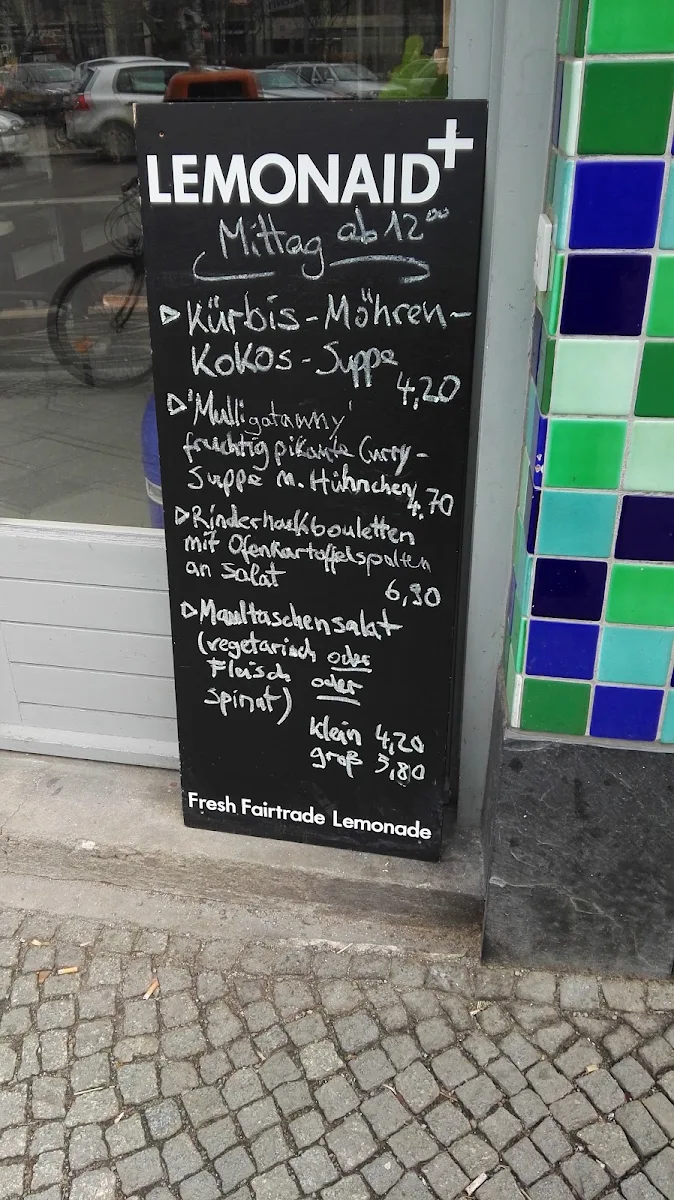 LEMONAID+
Mittag ab 12 00
Kürbis-Möhren-
Kokos-Suppe
4,20
'Mulligatawny'
fruchtig pikante Curry-
Suppe m. Hühnchen
4,70
Rinderhackbouletten
mit Ofenkartoffelspalten
an Salat
6,90
Maultaschensalat
(vegetarisch oder
Fleisch oder
Spinat)
klein 4,20
groß 5,80
Fresh Fairtrade Lemonade